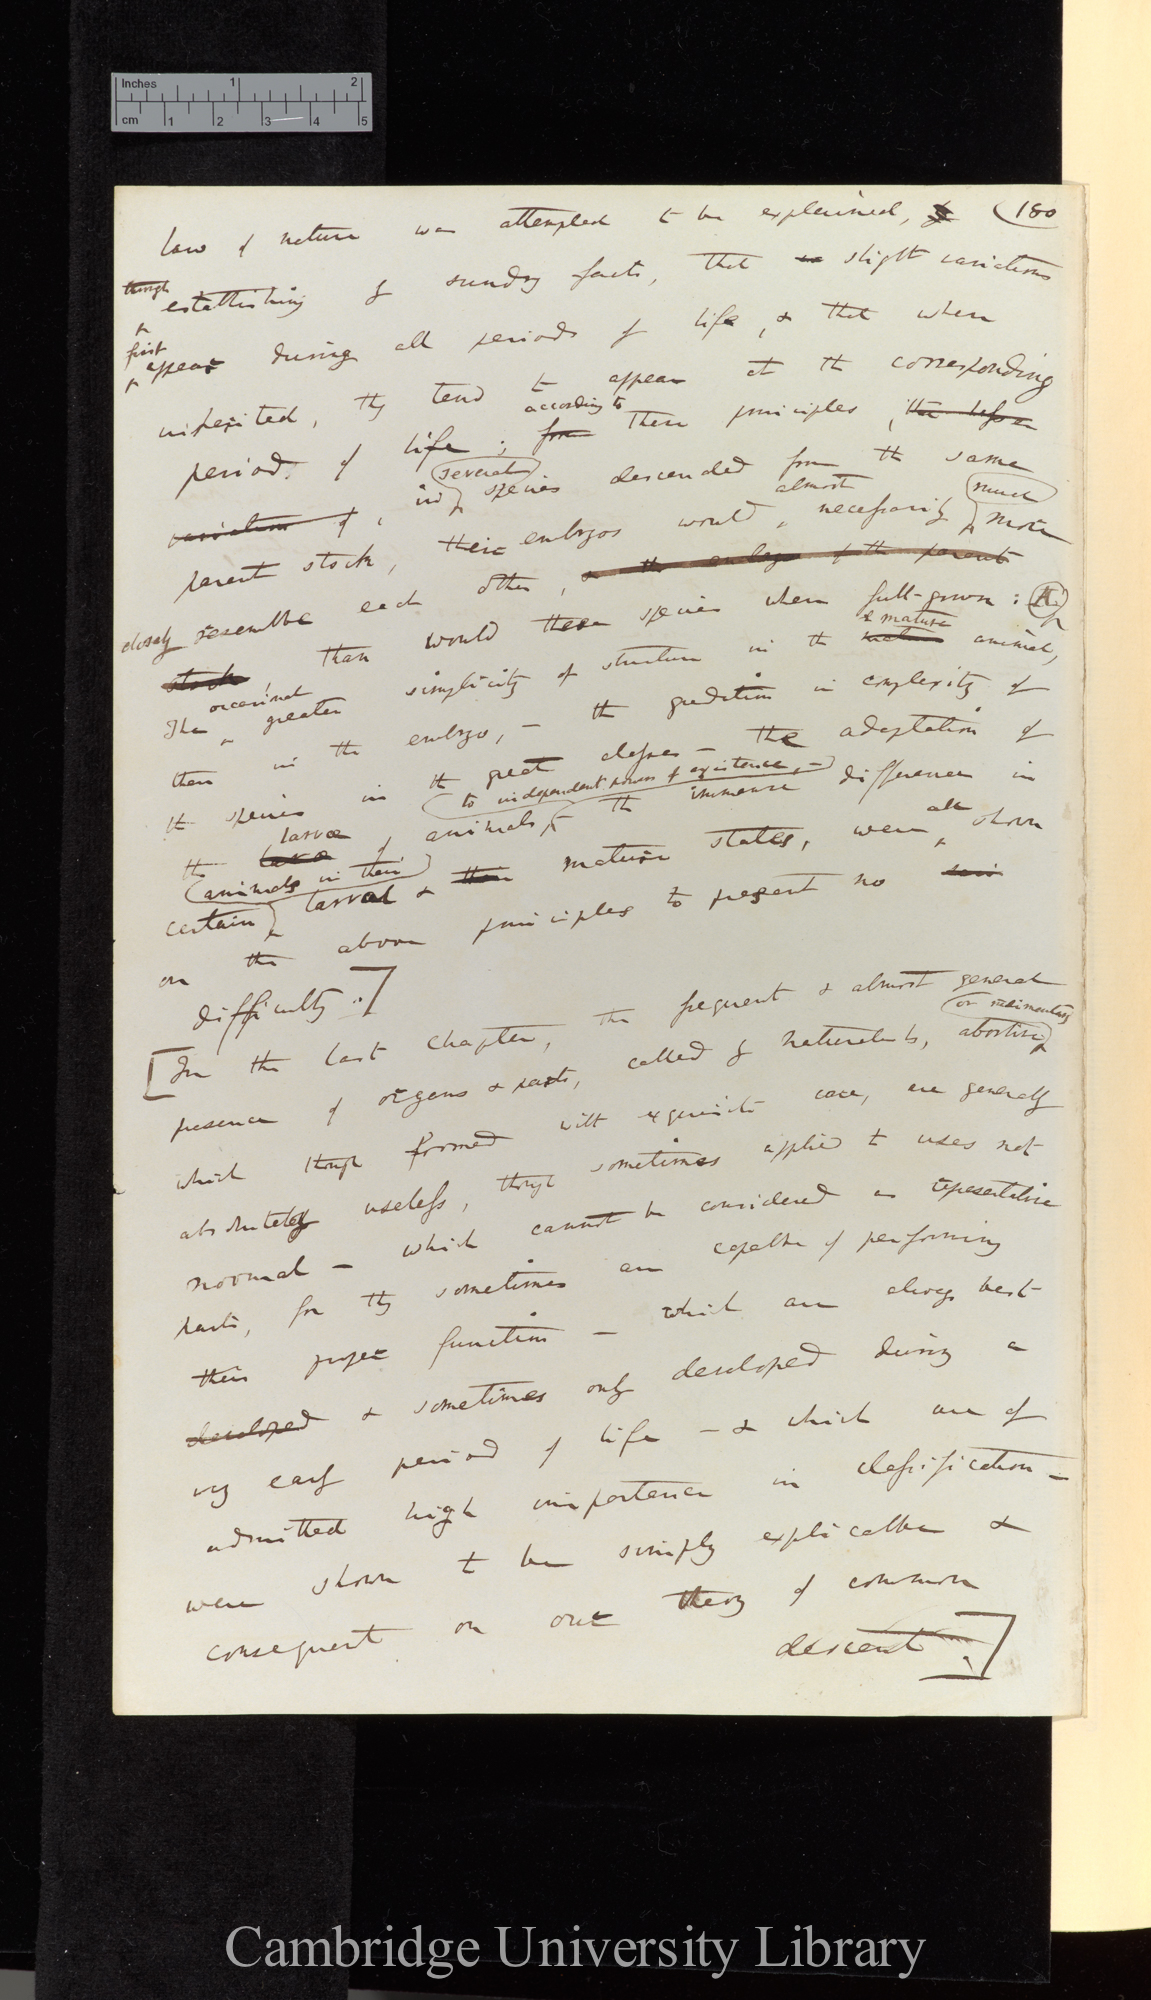 Inches 1 2
cm 1 2 3 4 5
law of nature was attempted to be explained, by (180
though
establishing of sundry facts, that slight variations
first
appear during all periods of life, & that when
inherited, they tend to appear at the corresponding
period of life; according to these principles,
variation of, in several species descended from the same
parent stock, their embryos would almost necessarily much more
closely resemble each other, & the embryo of the parent
stock, than would these species when full-grown:
The occasional greater simplicity of structure in the & mature animal,
then in the embryo, – the gradation in complexity of
the species in the great classes – the adaptation of
the larvæ of animals to independent powers of existence, – the immense difference in
certain animals in their larval & their mature states, were all shown
on the above principles to present no
difficulty.]
[In the last chapter, the frequent & almost general
presence of organs & parts, called by naturalists, abortive or rudimentary
which though formed with exquisite care, are generally
absolutely useless, though sometimes applied to uses not
normal – which cannot be considered as representative
parts, for they sometimes are capable of performing
their proper function – which are always best
developed & sometimes only developed during a
very early period of life – & which are of
admitted high importance in classification –
were shown to be simply explicable &
consequent on our theory of common
descent.]
Cambridge University Library